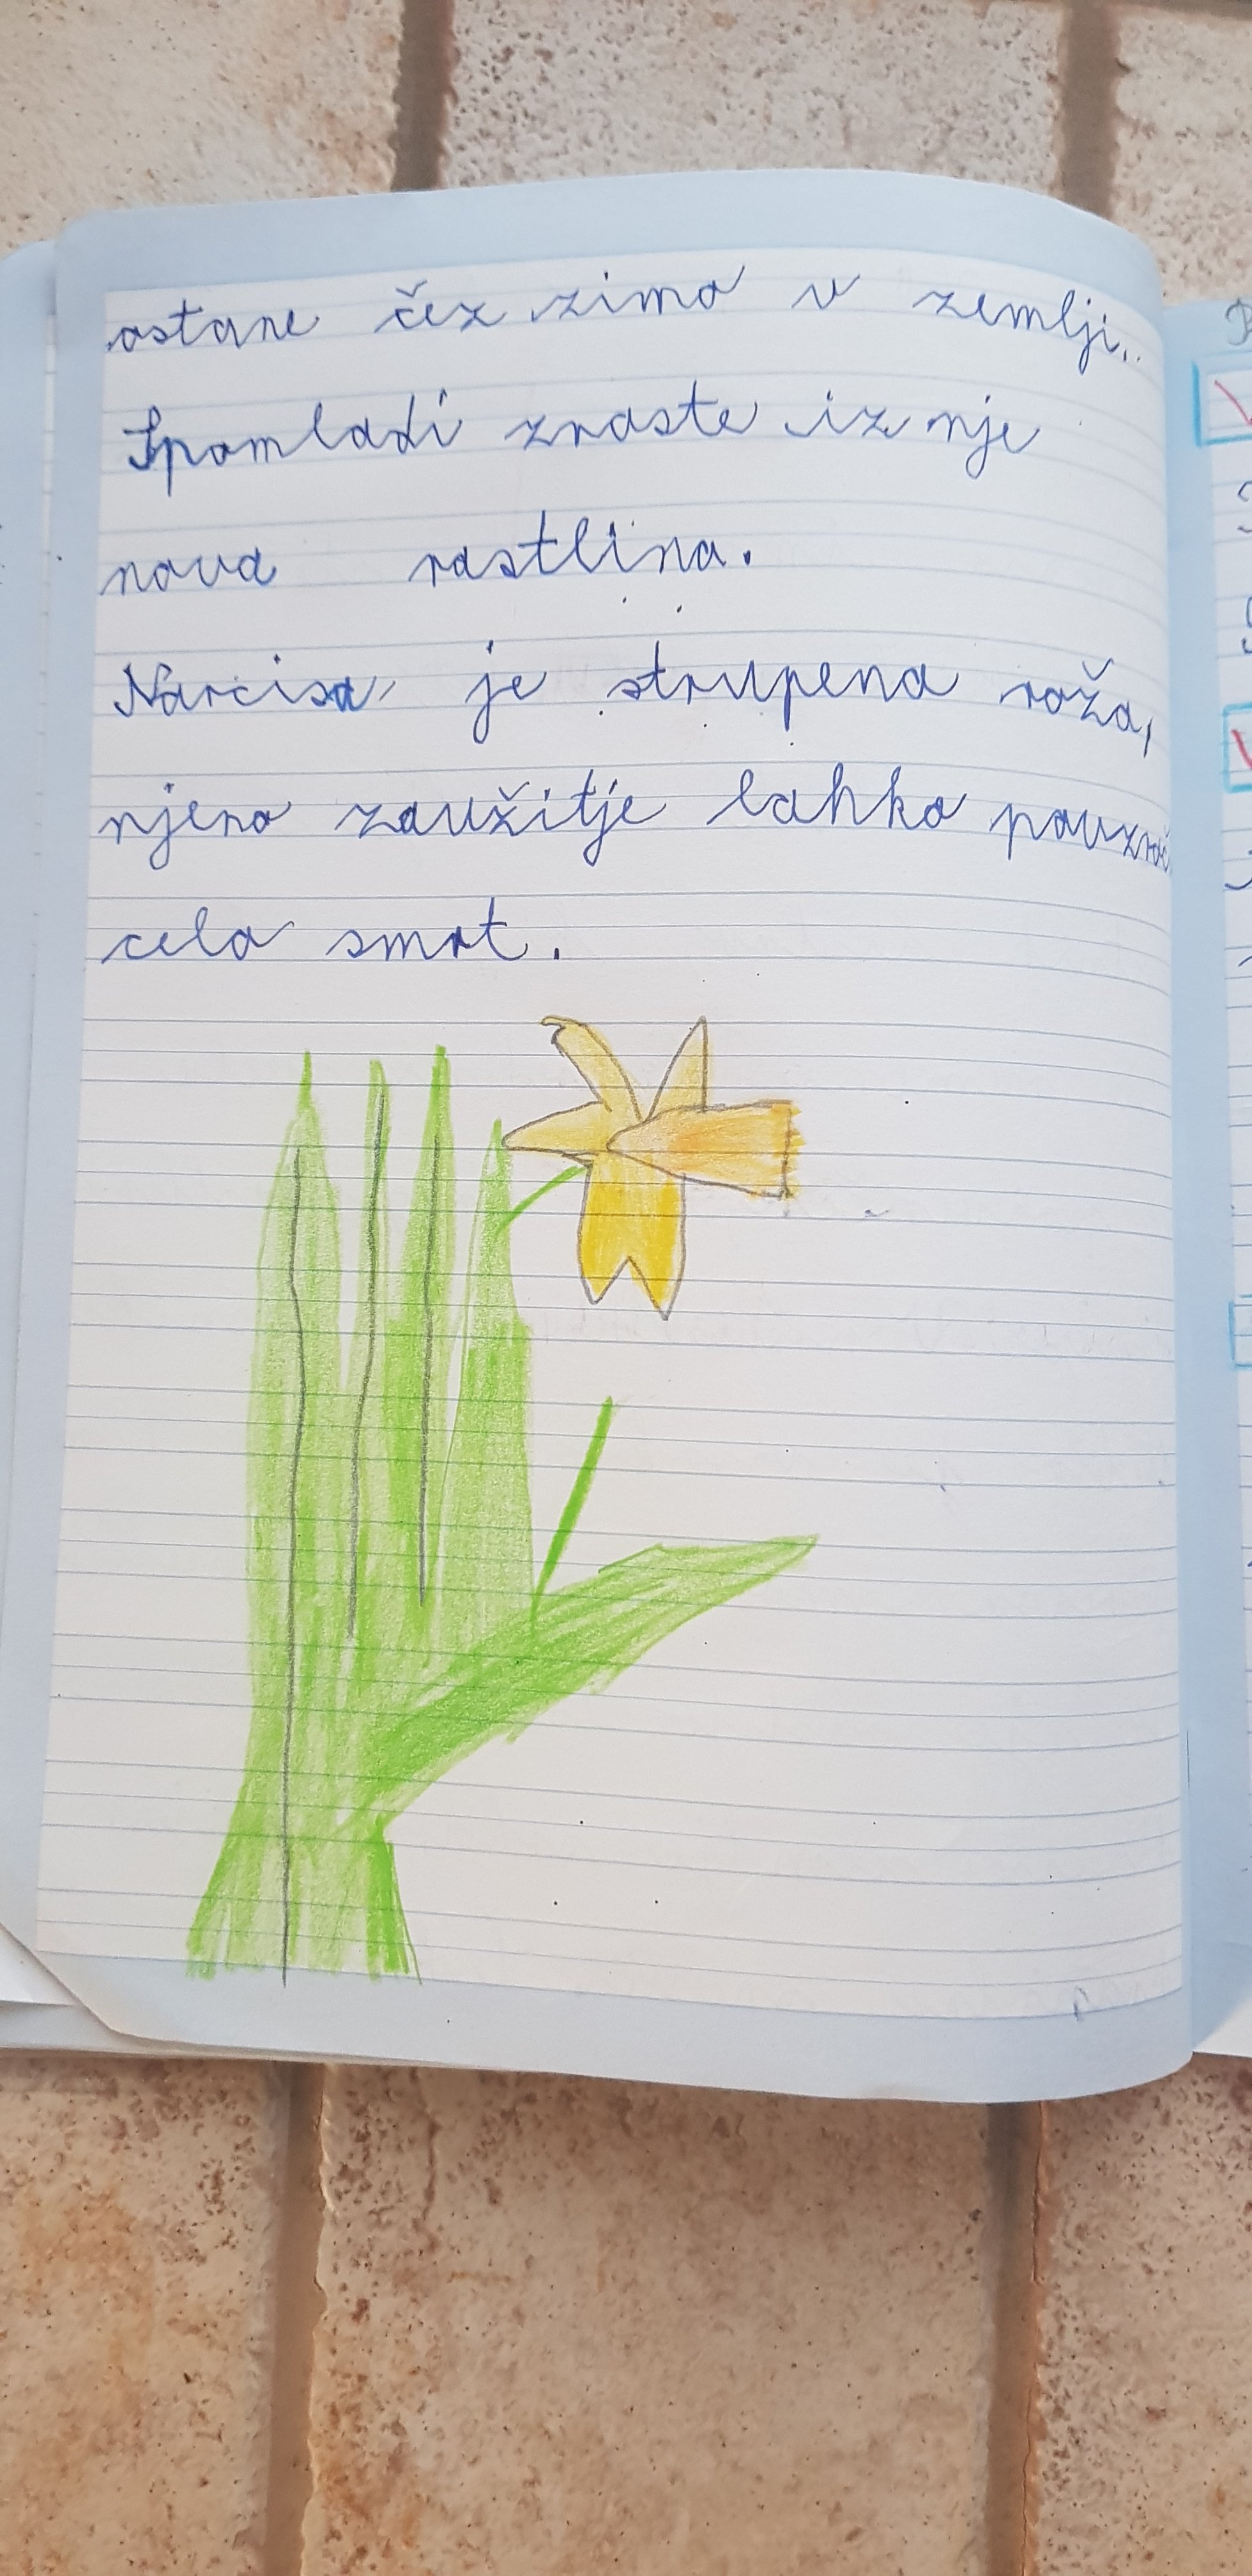 ostane čez zimo v zemlji..
Spomladi zraste iz nje
nova rastlina.
Narcisa je strupena roža,
njeno zaužitje lahko povzroči
celo smrt.